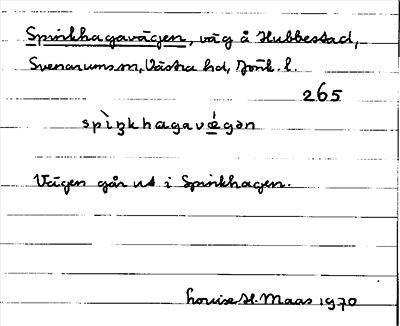 Spinkhagavägen, väg å Hubbestad,
Svenarums sn, Västra hd, Jönk. l.
265
spìŋkhagavǽgən
Vägen går ut i Spinkhagen.
Louise H. Maas 1970